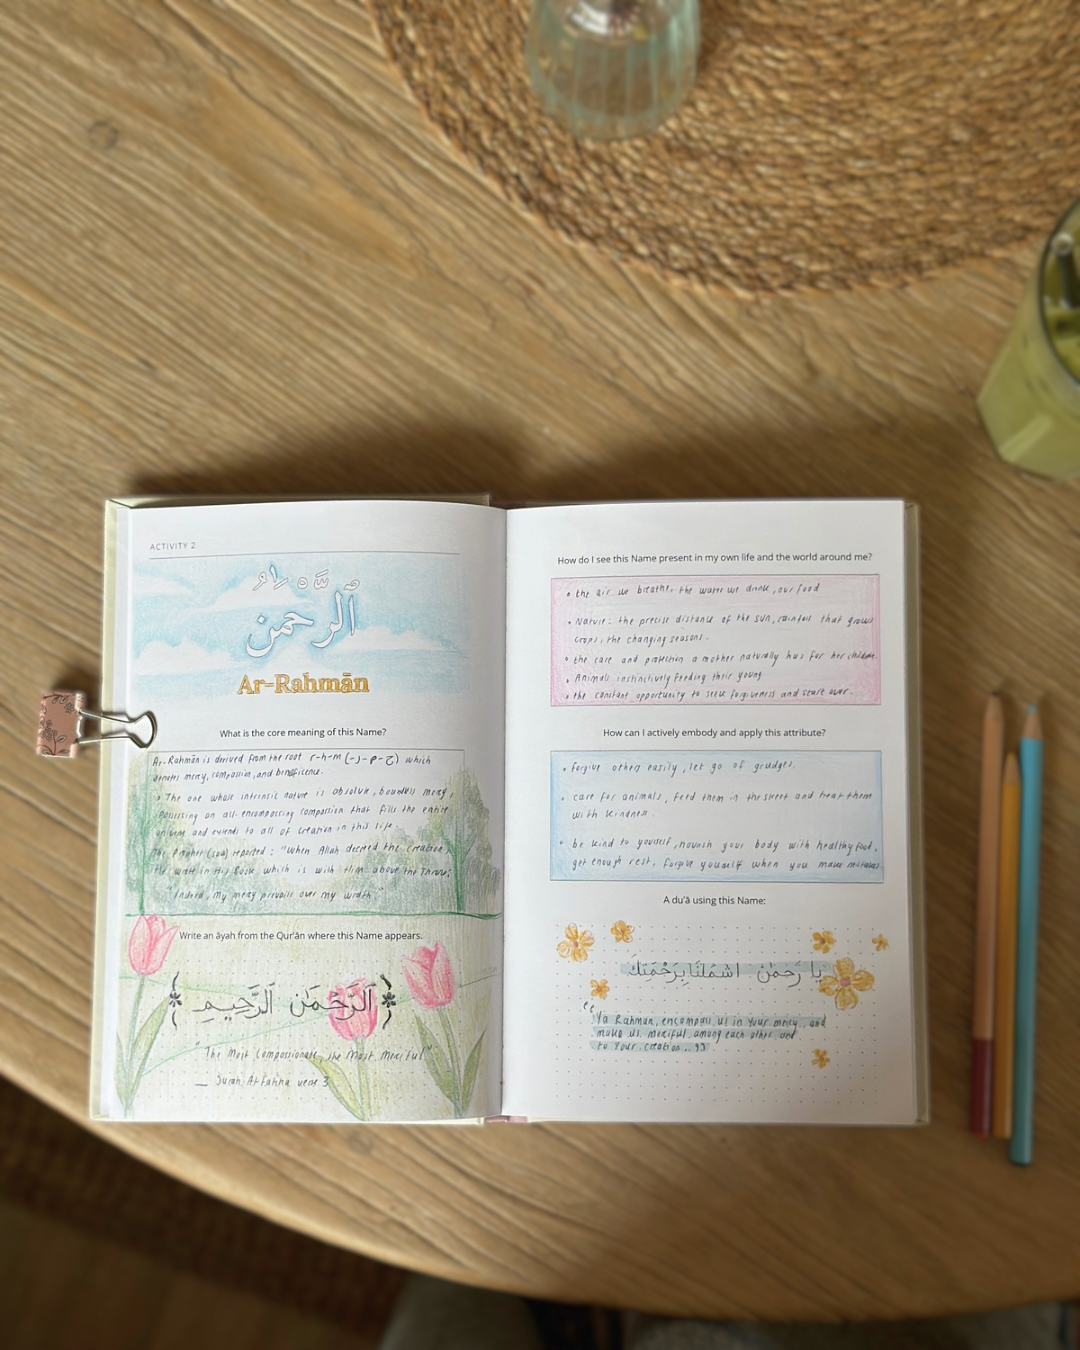 ACTIVITY 2
ٱلرَّحْمَٰنُ
Ar-Rahmān
What is the core meaning of this Name?
Ar-Rahmān is derived from the root r-h-m (ر-ح-م) which
denotes mercy, compassion, and beneficence.
• The one whose intrinsic nature is absolute, boundless mercy,
possessing an all-encompassing compassion that fills the entire
universe and extends to all of creation in this life.
The Prophet (saw) reported: "When Allah decreed the creation,
He wrote in His Book which is with Him above the Throne;
"Indeed, My mercy prevails over my wrath"
Write an āyah from the Qur'ān where this Name appears.
ٱلرَّحْمَٰنِ ٱلرَّحِيمِ
"The Most Compassionate, the Most Merciful"
— Surah Al Fatiha verse 3
How do I see this Name present in my own life and the world around me?
• the air we breathe, the water we drink, our food
• Nature: the precise distance of the sun, rainfall that grows
crops, the changing seasons.
• the care and protection a mother naturally has for her children.
• Animals instinctively feeding their young
• the constant opportunity to seek forgiveness and start over.
How can I actively embody and apply this attribute?
• forgive others easily, let go of grudges.
• care for animals, feed them in the street and treat them
with kindness.
• be kind to yourself, nourish your body with healthy food,
get enough rest, forgive yourself when you make mistakes
A du'ā using this Name:
يا رَحمٰنُ اشمَلنَا بِرَحْمَتِكَ
"Ya Rahman, encompass us in Your mercy, and
make us merciful among each other and
to Your creation..